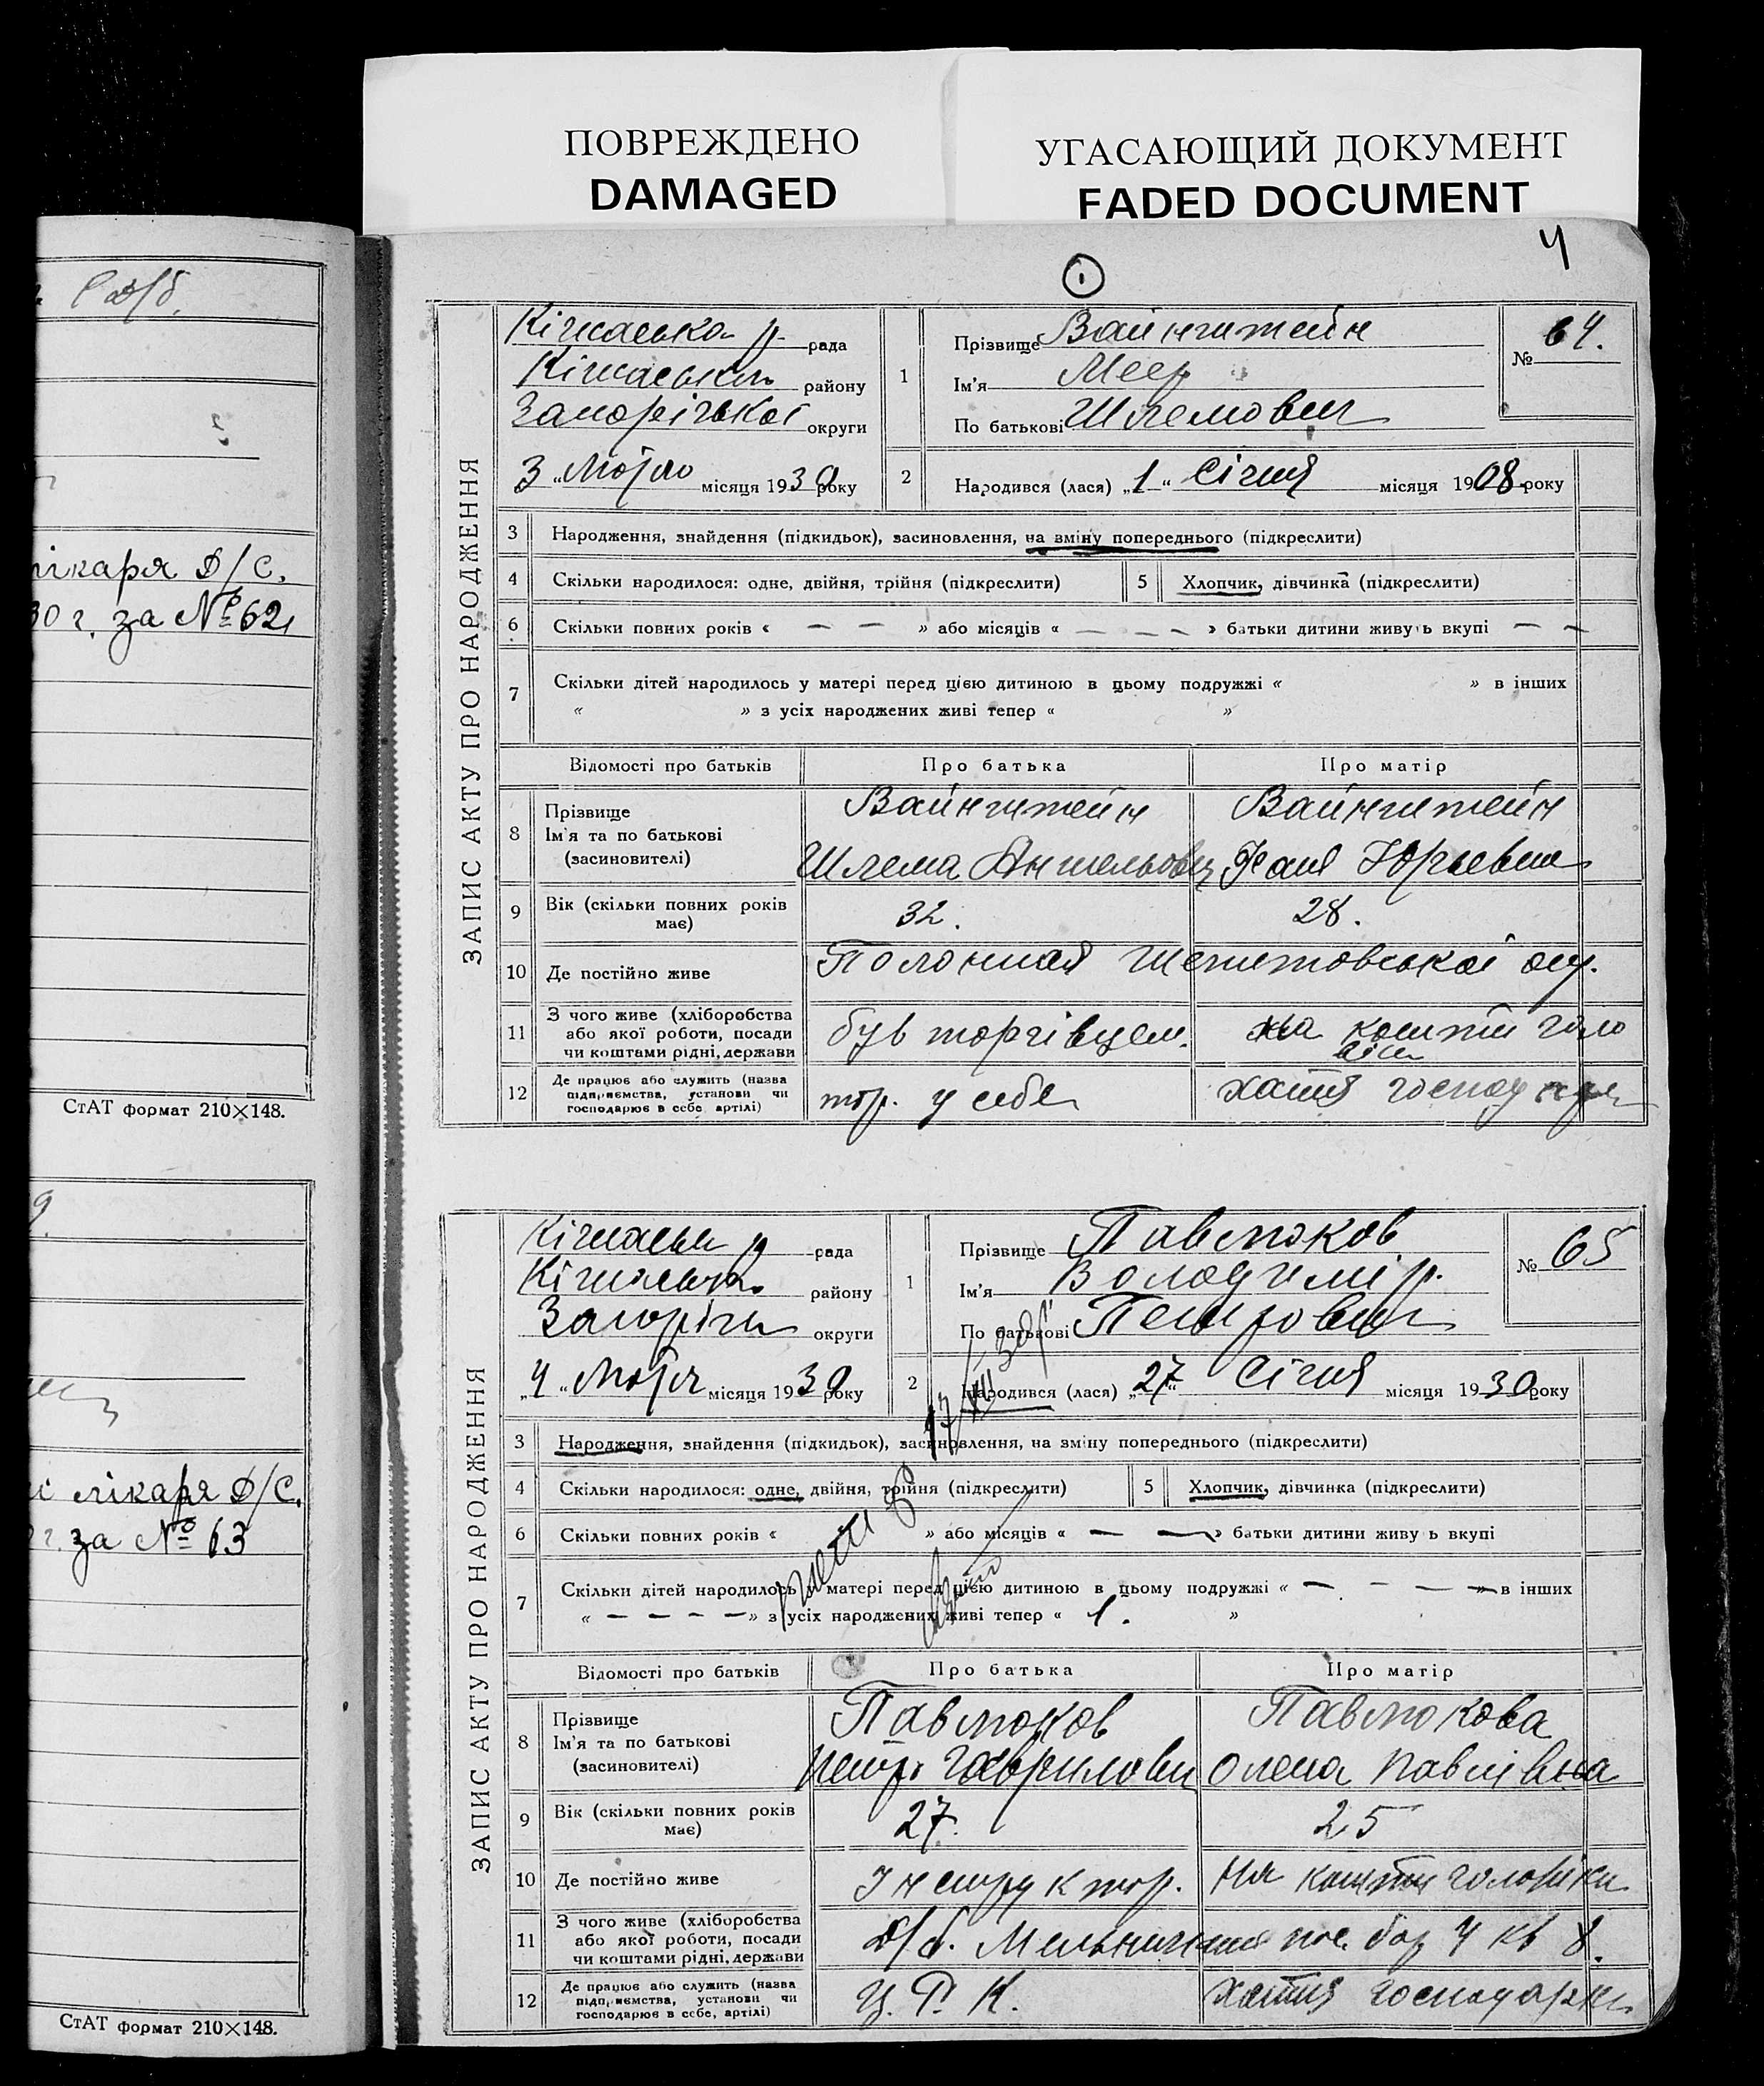 ПОВРЕЖДЕНО
DAMAGED
УГАСАЮЩИЙ ДОКУМЕНТ
FADED DOCUMENT
4
1
лікаря Д/С.
30 г. за № 62
СтАТ формат 210×148.
лікаря Д/С.
г. за № 63
СтАТ формат 210×148.
ЗАПИС АКТУ ПРО НАРОДЖЕННЯ
Кічкаська р. рада
Кічкаськ району
Запорізької округи
3 „ Лютого місяця 1930 року
1
Прізвище Вайнштейн
Ім'я Меер
По батькові Шлемович
№ 64.
2
Народився (лася) „1“ Січня місяця 1908 року
3 Народження, знайдення (підкидьок), засиновлення, на зміну попереднього (підкреслити)
4 Скільки народилося: одне, двійня, трійня (підкреслити)
5 Хлопчик, дівчинка (підкреслити)
6 Скільки повних років « — — » або місяців « — — — » батьки дитини живуть вкупі — —
7 Скільки дітей народилось у матері перед цією дитиною в цьому подружжі « » в інших
« » з усіх народжених живі тепер « »
Відомості про батьків Про батька Про матір
8 Прізвище
Ім'я та по батькові
(засиновителі)
Вайнштейн
Шлема
Вайнштейн
9 Вік (скільки повних років
має)
32.
28.
10 Де постійно живе
Шепетовської окр.
11 З чого живе (хліборобства
або якої роботи, посади
чи коштами рідні, держави
був торгівцем.
на кошти голо
віки
12 Де працює або служить (назва
підприємства, установи чи
господарює в себе, артілі)
тор. у себе
хатня господарка
ЗАПИС АКТУ ПРО НАРОДЖЕННЯ
Кічкаськ р рада
Кічкаськ. району
Запорізьк округи
„4“ Лютого місяця 1930 року
1
Прізвище Павлюков
Ім'я Володимір.
По батькові Петрович
№ 65
2
Народився (лася) „27“ Січня місяця 1930 року
3 Народження, знайдення (підкидьок), засиновлення, на зміну попереднього (підкреслити)
4 Скільки народилося: одне, двійня, трійня (підкреслити)
5 Хлопчик, дівчинка (підкреслити)
6 Скільки повних років « » або місяців « — — » батьки дитини живуть вкупі
7 Скільки дітей народилось у матері перед цією дитиною в цьому подружжі « — — — — » в інших
« — — — — » з усіх народжених живі тепер « 1. »
Відомості про батьків Про батька Про матір
8 Прізвище
Ім'я та по батькові
(засиновителі)
Павлюков
Петро Гаврилович
Павлюкова
Олена Павлівна
9 Вік (скільки повних років
має)
27.
25
10 Де постійно живе
Інструктор.
На кошти головіки
11 З чого живе (хліборобства
або якої роботи, посади
чи коштами рідні, держави
пос. бар 4 кв 8.
12 Де працює або служить (назва
підприємства, установи чи
господарює в себе, артілі)
Ц. Р. К.
хатня господарка